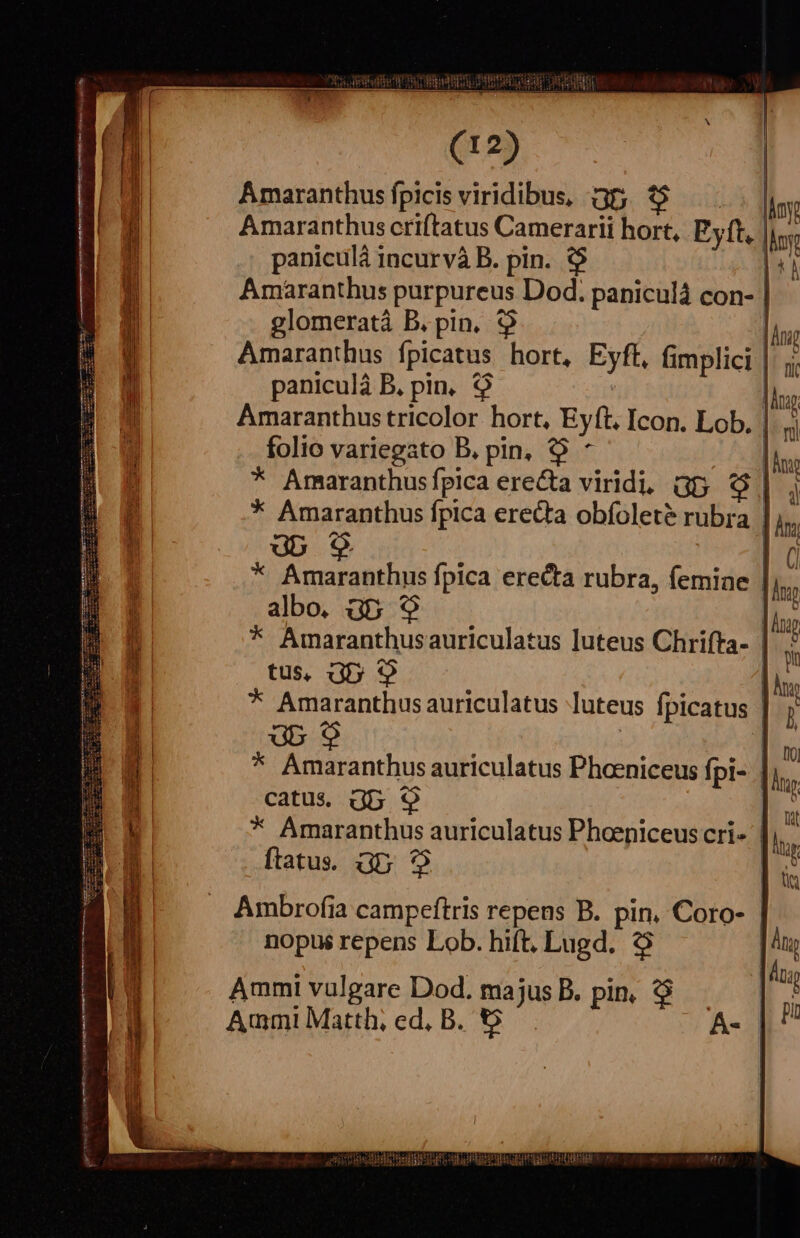 (12)
Amaranthus ſpicis viridibus,
Amaranthus criſtatus Camerarii hort, Eyſt,
paniculâ incurvâ B. pin.
Amaranthus purpureus Dod. paniculâ con-
glomeratâ B. pin,
Amaranthus ſpicatus hort, Eyſt, ſimplici
paniculâ B, pin,
Amaranthus tricolor hort, Eyſt. Icon. Lob.
folio variegato B, pin,
* Amaranthus ſpica erecta viridi,
* Amaranthus ſpica erecta obſoletè rubra
* Amaranthus ſpica erecta rubra, ſemine
albo.
* Amaranthus auriculatus luteus Chriſta-
tus.
* Amaranthus auriculatus luteus ſpicatus
* Amaranthus auriculatus Phœniceus ſpi-
catus.
* Amaranthus auriculatus Phœniceus cri-
ſtatus.
Ambroſia campeſtris repens B. pin. Coro-
nopus repens Lob. hiſt. Lugd.
Ammi vulgare Dod. majus B. pin,
Ammi Matth. ed, B.
A-